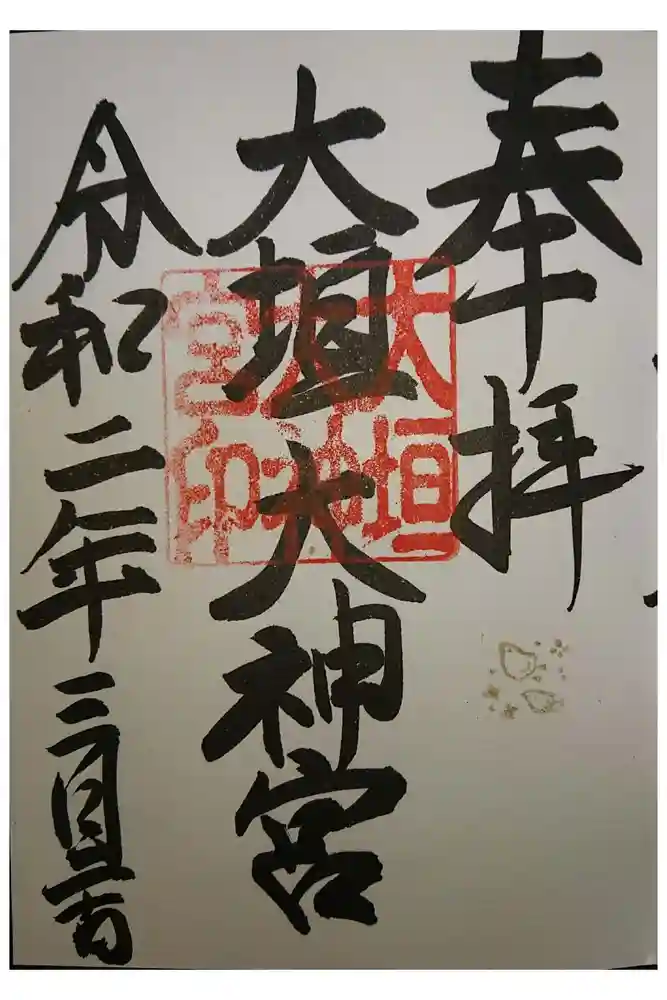 奉拝
大垣大神宮
大垣
大神
宮印
令和二年三月